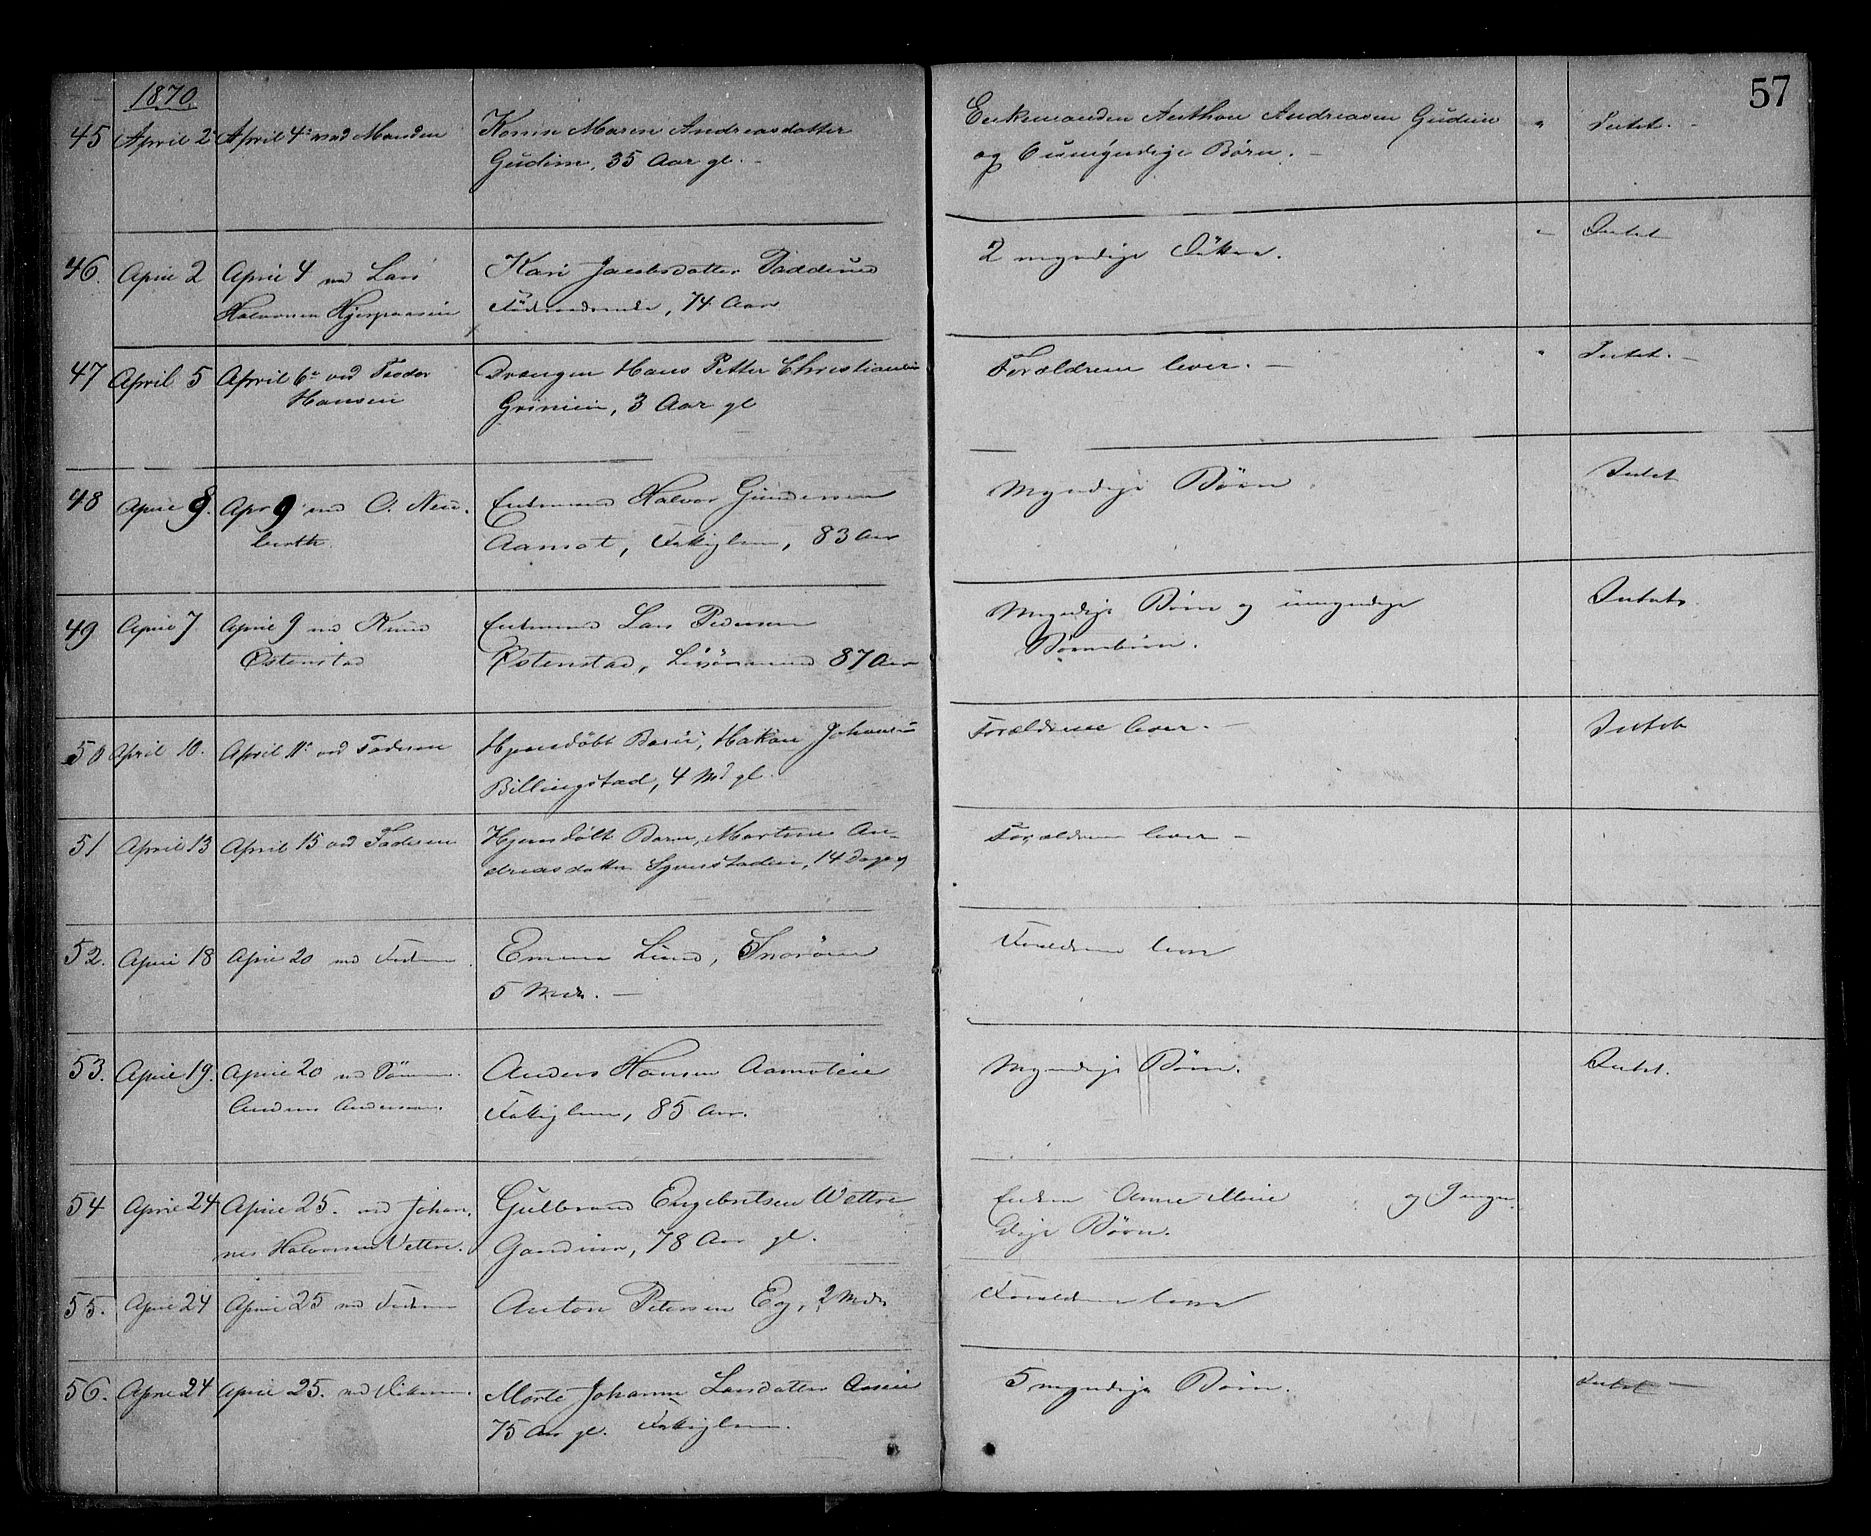 1870.
57
45 April 2 April 4 ved Manden Karen Maren Andreasdatter Enkemanden Anthon Andreasen Gudim " Intet. -
Gudim, 35 Aar gl. - og 6 umyndige Børn. -
46. April 2 April 4 ved Lars Kari Jacobsdatter 2 myndige - Intet
Halvorsen 74 Aar
47 April 5 April 6 ved Fader Drengen Hans Petter Christiansen Forældrene lever. - " Intet. -
Hansen 3 Aar gl
48 April 8. Apr 9 ved O. Neu- Enkemand Halvor Gundersen Myndige Børn Intet
berth. Aamot, Fattiglem, 83 Aar
49 April 7 April 9 ved Knud Enkemand Lars Pedersen Myndige Børn og umyndige Intet
Østenstad Østenstad, 87 Aar Børnebørn.
50 April 10. April 11 ved Faderen Hjemdøbt Barn, Hakon Johansen Forældrene lever. - Intet
Billingstad, 4 Md gl.
51 April 13 April 15 ved Faderen Hjemdøbt Barn, Martine An- Forældrene lever -
dreasdatter 14 Dage gl
52. April 18 April 20 ved Faderen Emma Lund, Snarøen Forældrene lever
5 Mdr. -
53. April 19. April 20 ved Sønnen Anders Hansen Aamoteie Myndige Børn. Intet.
Anders Andersen. Fattiglem, 85 Aar.
54 April 24 April 25. ved Johan- Gulbrand Engebretsen Wettre Enken Anne Marie og 9 myn-
nes Halvorsen Vettre. 78 Aar gl. dige Børn.
55. April 24 April 25 ved Faderen Anton Petersen Eg, 2 Mdr Forældrene lever
56. April 24 April 25. ved Marte Johanne Larsdatter 5 myndige Børn. Intet -
75 Aar gl. Fattiglem.